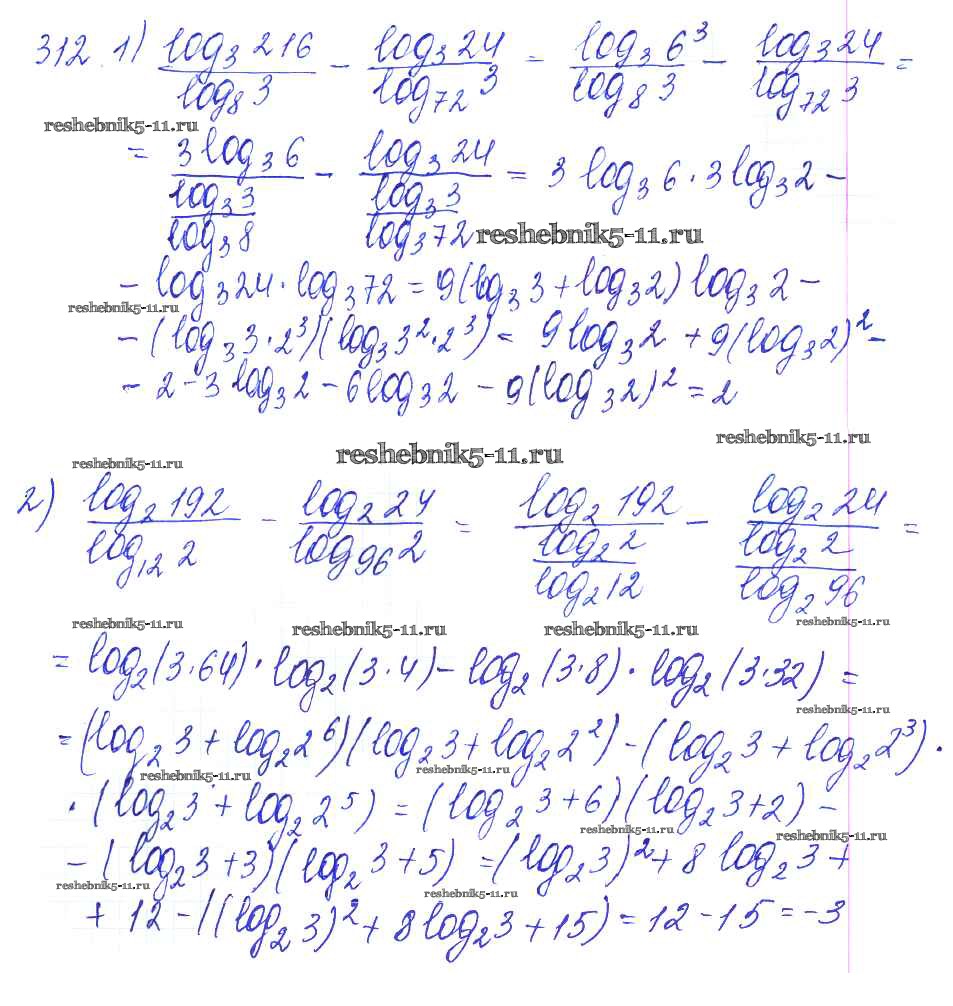 312. 1) log₃ 216 / log₈ 3 − log₃ 24 / log₇₂ 3 = log₃ 6³ / log₈ 3 − log₃ 24 / log₇₂ 3 =
reshebnik5-11.ru
= 3 log₃ 6 / (log₃ 3 / log₃ 8) − log₃ 24 / (log₃ 3 / log₃ 72) = 3 log₃ 6 · 3 log₃ 2 −
reshebnik5-11.ru
− log₃ 24 · log₃ 72 = 9(log₃ 3 + log₃ 2) log₃ 2 −
reshebnik5-11.ru
− (log₃ 3 · 2³)(log₃ 3² · 2³) = 9 log₃ 2 + 9(log₃ 2)² −
− 2 − 3 log₃ 2 − 6 log₃ 2 − 9(log₃ 2)² = 2
reshebnik5-11.ru
reshebnik5-11.ru
reshebnik5-11.ru
2) log₂ 192 / log₁₂ 2 − log₂ 24 / log₉₆ 2 = log₂ 192 / (log₂ 2 / log₂ 12) − log₂ 24 / (log₂ 2 / log₂ 96) =
reshebnik5-11.ru
reshebnik5-11.ru
reshebnik5-11.ru
reshebnik5-11.ru
= log₂(3 · 64) · log₂(3 · 4) − log₂(3 · 8) · log₂(3 · 32) =
reshebnik5-11.ru
= (log₂ 3 + log₂ 2⁶)(log₂ 3 + log₂ 2²) − (log₂ 3 + log₂ 2³) ·
reshebnik5-11.ru
reshebnik5-11.ru
· (log₂ 3 + log₂ 2⁵) = (log₂ 3 + 6)(log₂ 3 + 2) −
reshebnik5-11.ru
reshebnik5-11.ru
− (log₂ 3 + 3)(log₂ 3 + 5) = (log₂ 3)² + 8 log₂ 3 +
reshebnik5-11.ru
reshebnik5-11.ru
+ 12 − ((log₂ 3)² + 8 log₂ 3 + 15) = 12 − 15 = −3